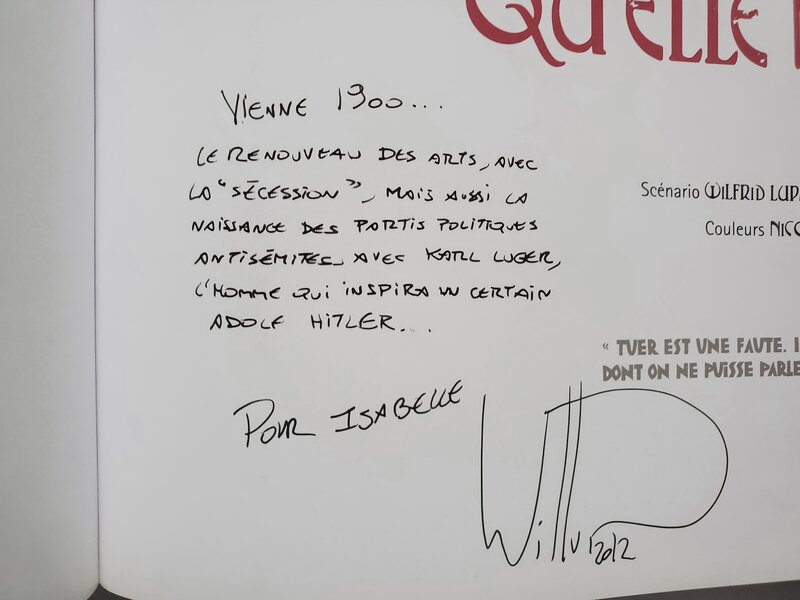 QU'ELLE
VIENNE 1900...
LE RENOUVEAU DES ARTS, AVEC
LA "SÉCESSION", MAIS AUSSI LA
NAISSANCE DES PARTIS POLITIQUES
ANTISÉMITES, AVEC KARL LUGER,
L'HOMME QUI INSPIRA UN CERTAIN
ADOLF HITLER...
Scénario WILFRID LUPA
Couleurs NICO
« TUER EST UNE FAUTE. I
DONT ON NE PUISSE PARLE
POUR ISABELLE
2012